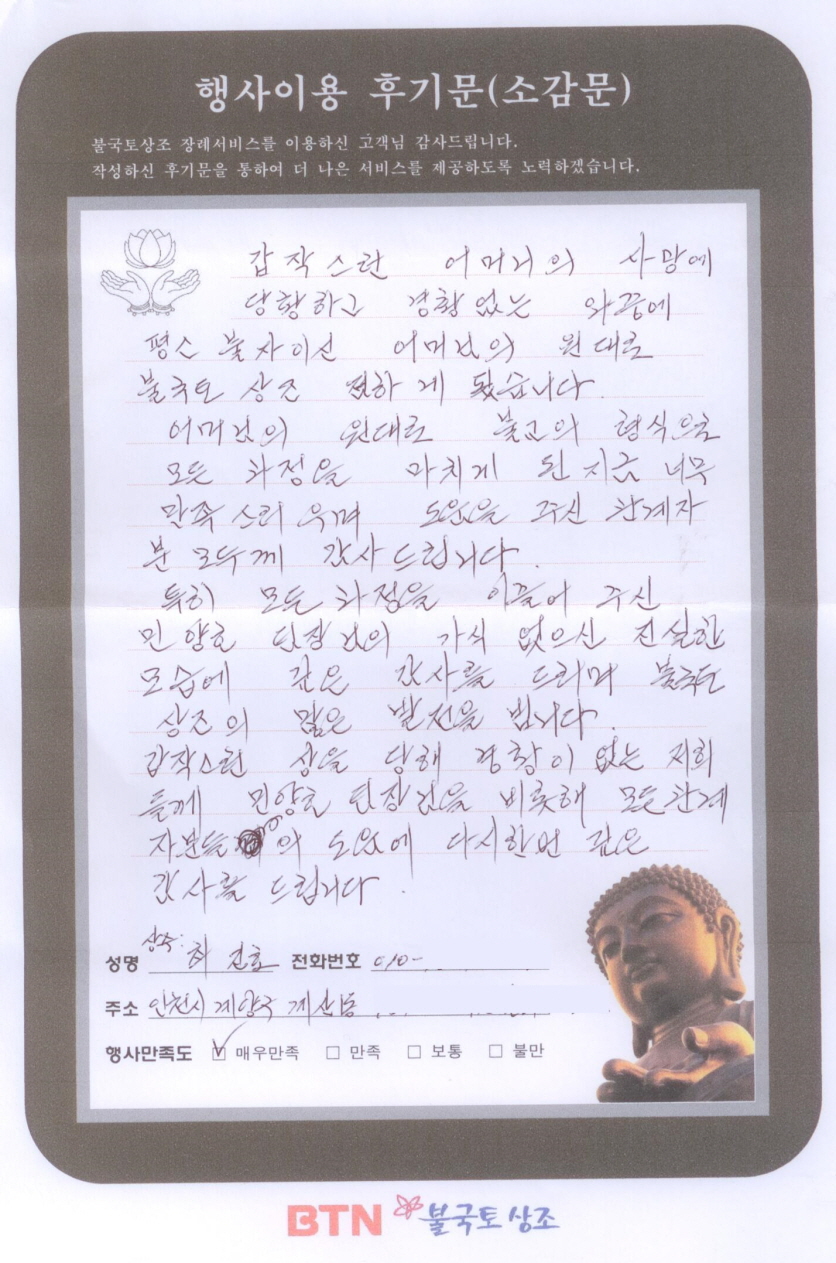 행사이용 후기문(소감문)
불국토상조 장례서비스를 이용하신 고객님 감사드립니다.
작성하신 후기문을 통하여 더 나은 서비스를 제공하도록 노력하겠습니다.
갑작스런 어머니의 사망에
당황하고 경황없는 와중에
평소 불자이신 어머님의 원대로
불국토 상조 접하게 됐습니다.
어머님의 원대로 불교의 형식으로
모든 과정을 마치게 된 지금 너무
만족스러우며 도움을 주신 관계자
분 모두께 감사드립니다.
특히 모든 과정을 이끌어 주신
민양호 단장님의 가식 없으신 진실한
모습에 깊은 감사를 드리며 불국토
상조의 많은 발전을 빕니다.
갑작스런 상을 당해 경황이 없는 저희
들께 민양호 단장님을 비롯해 모든관계
자분들의 도움에 다시한번 깊은
감사를 드립니다.
성명 상주: 전화번호 010-
주소 인천시 계양구 계산동
행사만족도 ☑ 매우만족 □ 만족 □ 보통 □ 불만
BTN 불국토상조